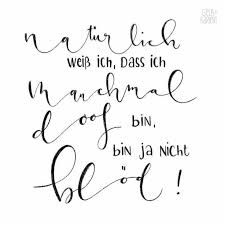 natürlich
weiß ich, dass ich
manchmal
doof bin,
bin ja nicht
blöd!